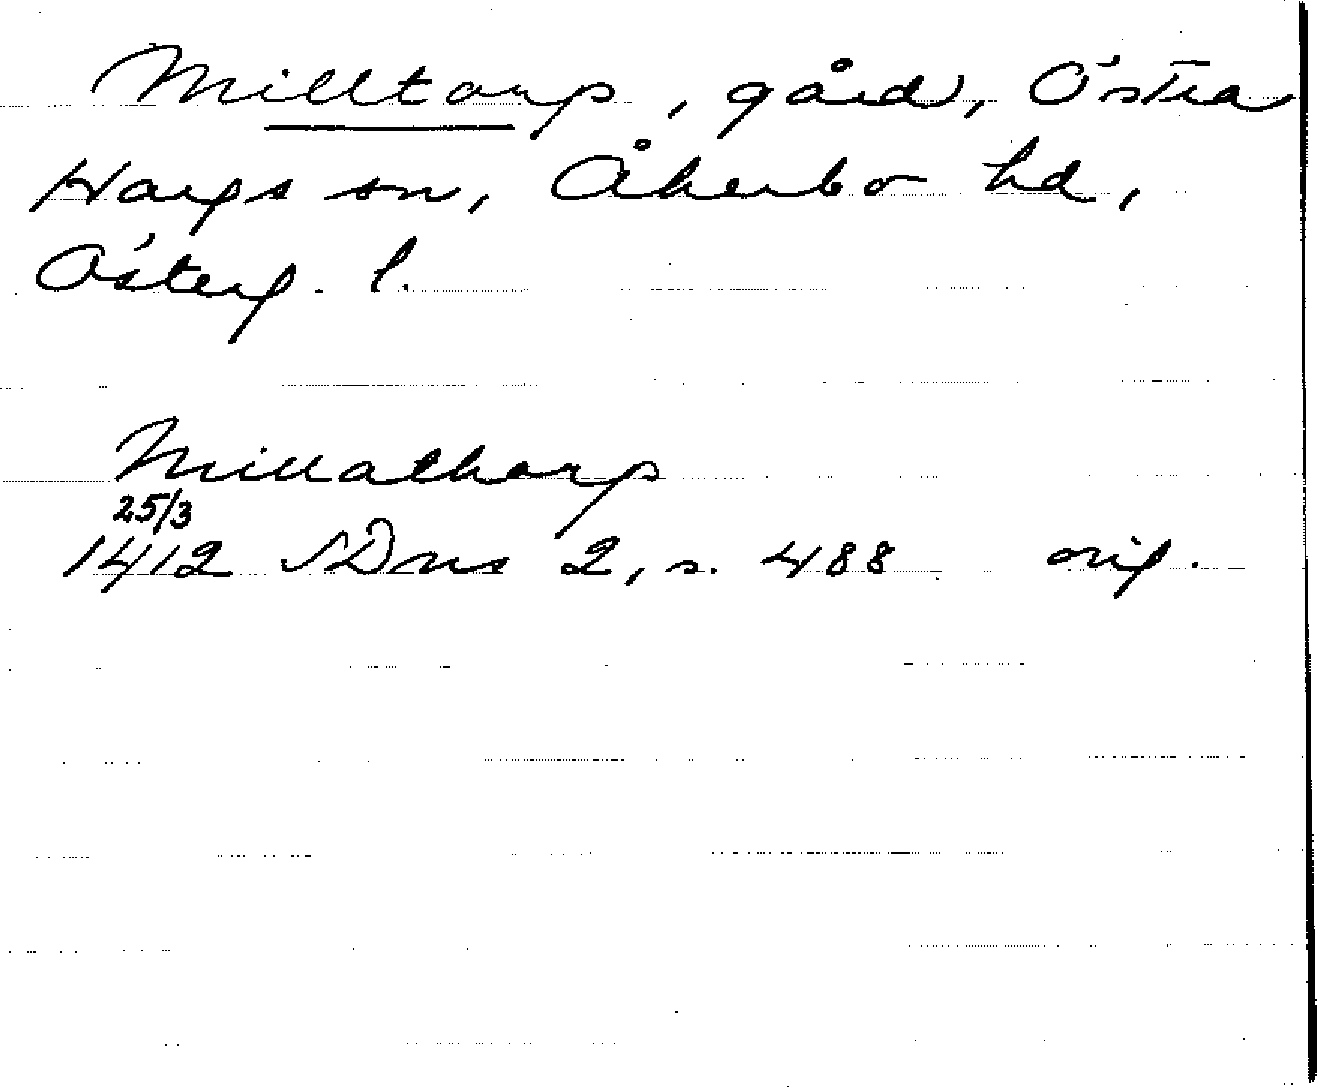 Milltorp, gård, Östra
Hargs sn, Åkerbo hd,
Österg. l.
Millathorp
25/3
1412 SDns 2, s. 488 orig.